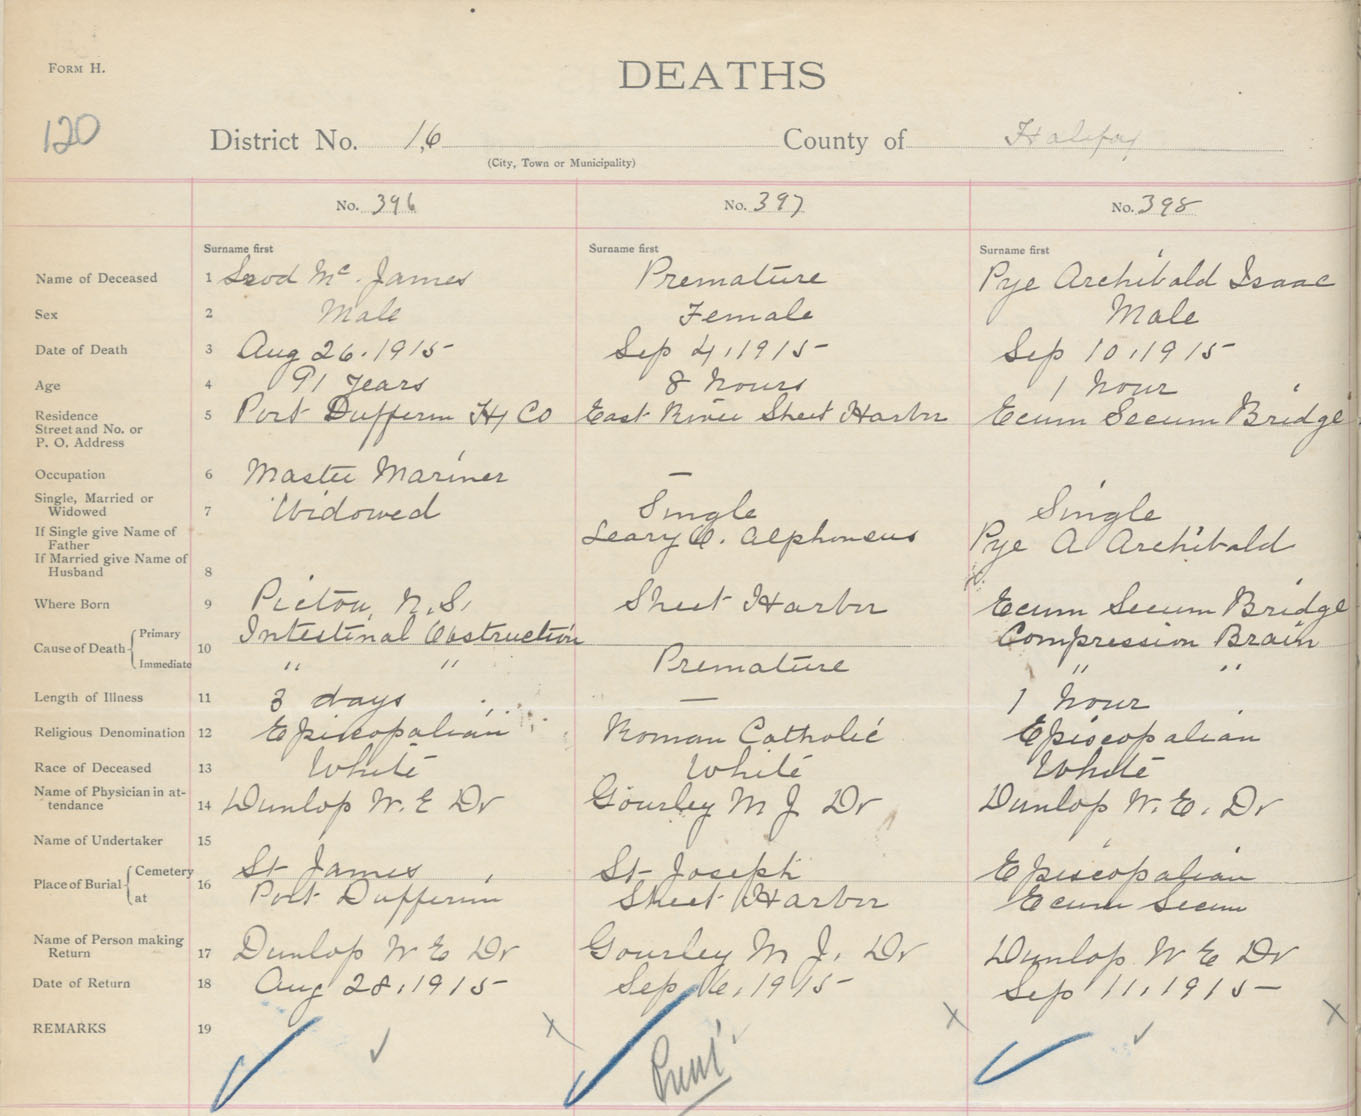 FORM H.
DEATHS
120
District No. 16 County of Halifax
(City, Town or Municipality)
No. 396 No. 397 No. 398
Surname first Surname first Surname first
Name of Deceased 1 Mc. James Premature Pye Archibald Isaac
Sex 2 Male Female Male
Date of Death 3 Aug 26, 1915 Sep 4, 1915 Sep 10, 1915
Age 4 91 years 8 hours 1 hour
Residence Street and No. or P. O. Address 5 Port Dufferin Hx Co East River Sheet Harbor Ecum Secum Bridge
Occupation 6 Master Mariner —
Single, Married or Widowed 7 Widowed Single Single
If Single give Name of Father Leary Alphonsus Pye A Archibald
If Married give Name of Husband 8
Where Born 9 Pictou, N.S. Sheet Harbor Ecum Secum Bridge
Cause of Death Primary 10 Intestinal Obstruction Compression Brain
Immediate " " Premature " "
Length of Illness 11 3 days — 1 hour
Religious Denomination 12 Episcopalian Roman Catholic Episcopalian
Race of Deceased 13 White White White
Name of Physician in attendance 14 Dunlop W. E Dr Gourley M J Dr Dunlop W. E. Dr
Name of Undertaker 15
Place of Burial Cemetery 16 St James St Joseph Episcopalian
at Port Dufferin Sheet Harbor Ecum Secum
Name of Person making Return 17 Dunlop W E Dr Gourley M J. Dr Dunlop W E Dr
Date of Return 18 Aug 28, 1915 Sep 6, 1915 Sep 11, 1915
REMARKS 19